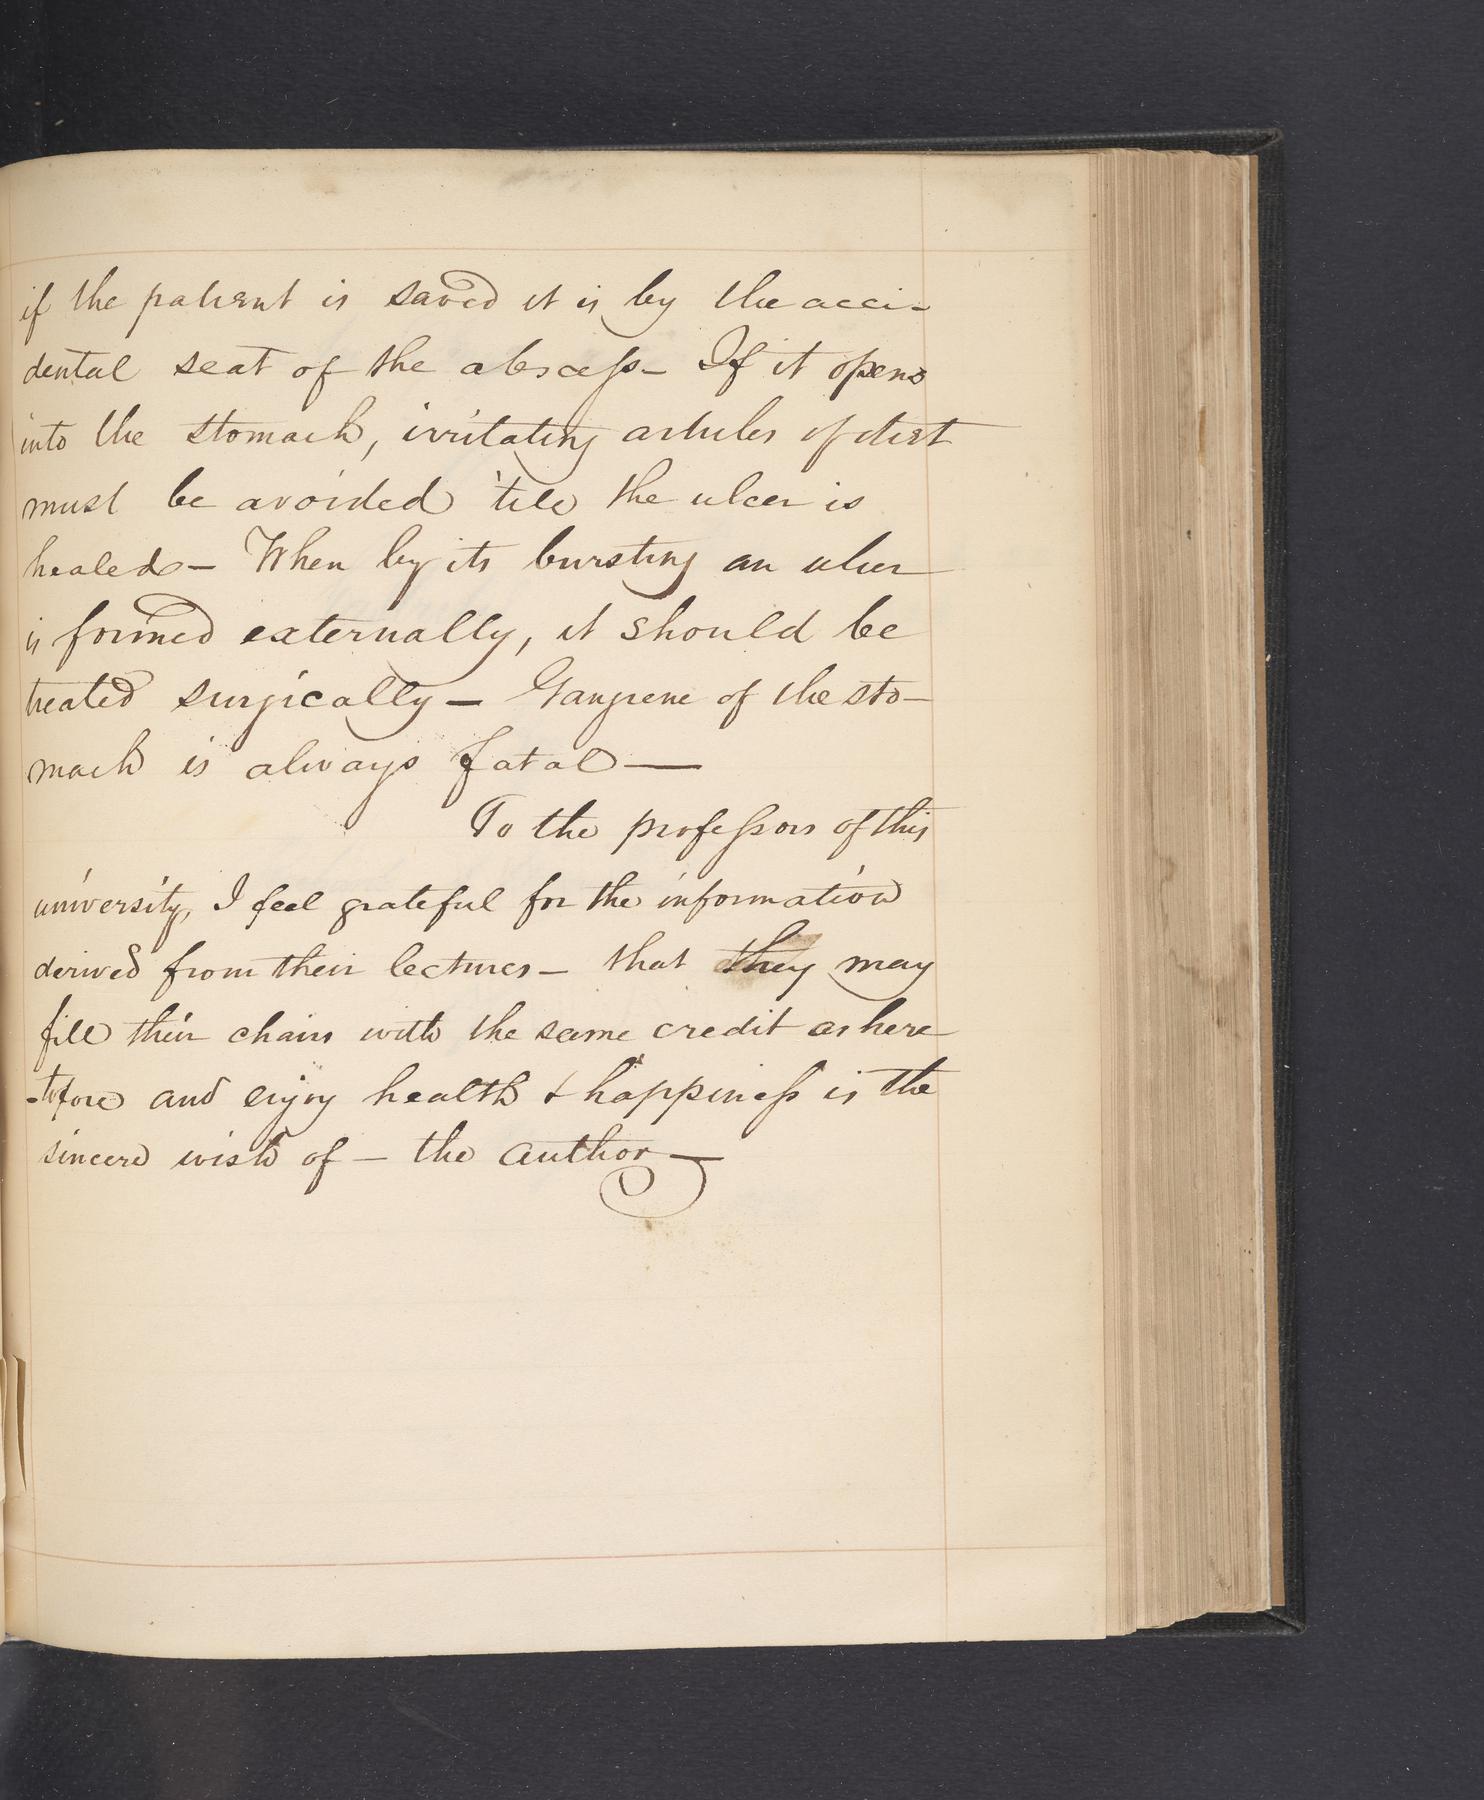 if the patient is saved it is by the acci-
dental seat of the abscess- If it opens
into the stomach, irritating articles of diet
must be avoided 'till the ulcer is
healed- When by its bursting an ulcer
is formed externally, it should be
treated surgically- Gangrene of the sto-
mach is always fatal-
To the professors of this
university, I feel grateful for the information
derived from their lectures- that they may
fill their chairs with the same credit as here
-tofore and enjoy health & happiness is the
sincere wish of - the author-